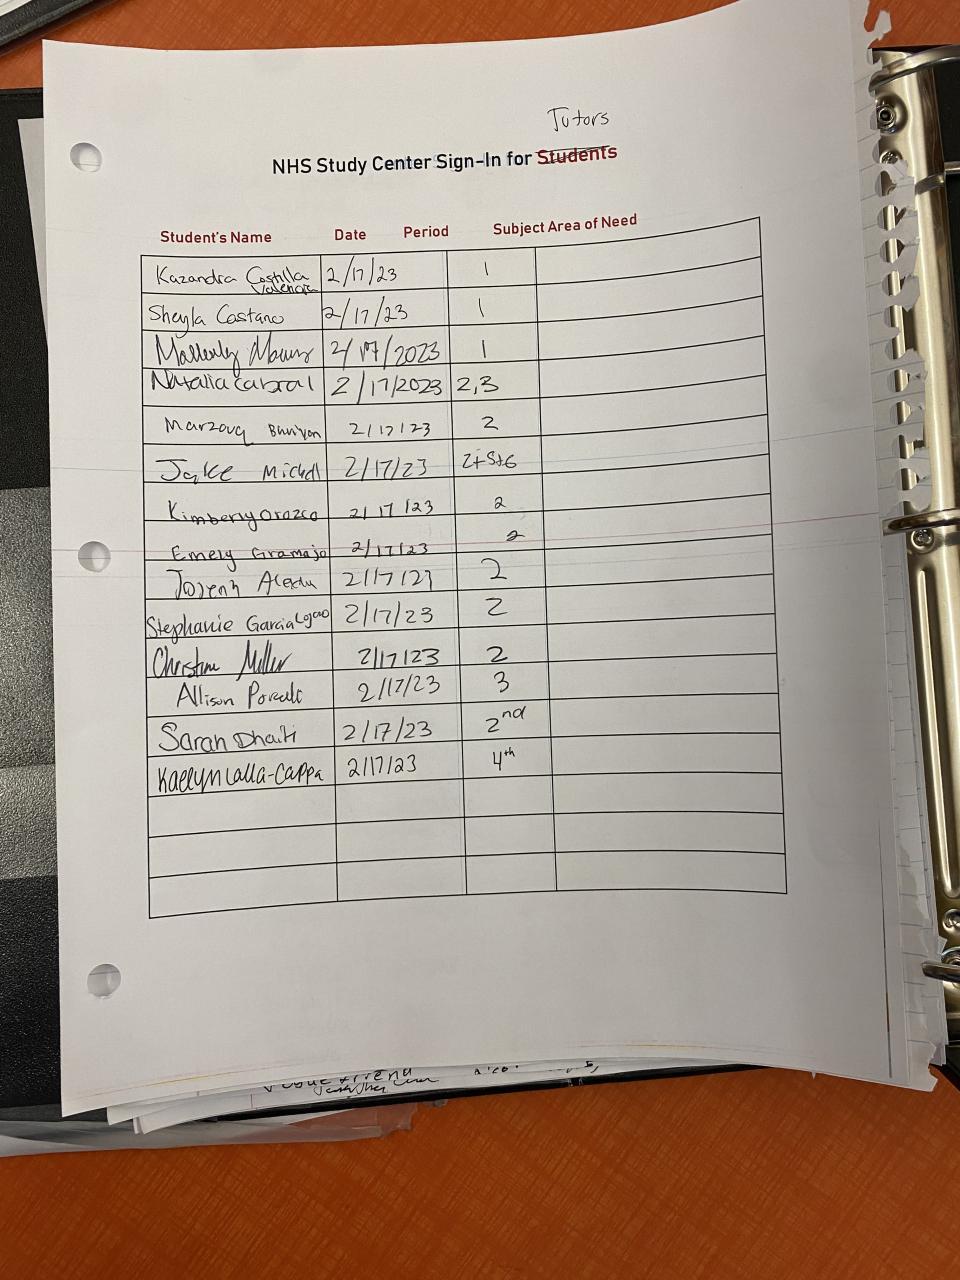 Tutors
NHS Study Center Sign-In for Students
Student's Name Date Period Subject Area of Need
Kazandra Castilla Valencia 2/17/23 1
Sheyla Castano 2/17/23 1
2/17/2023 1
Natalia Cabral 2/17/2023 2,3
Marzouq 2/17/23 2
Jake Mickell 2/17/23 2+5+6
Kimberly Orozco 2/17/23 2
Emely Gramajo 2/17/23 2
Joseph 2/17/23 2
Stephanie Garcia 2/17/23 2
Christine Miller 2/17/23 2
Allison 2/17/23 3
Sarah Dhaiti 2/17/23 2nd
Kaelyn Calla-Cappa 2/17/23 4th